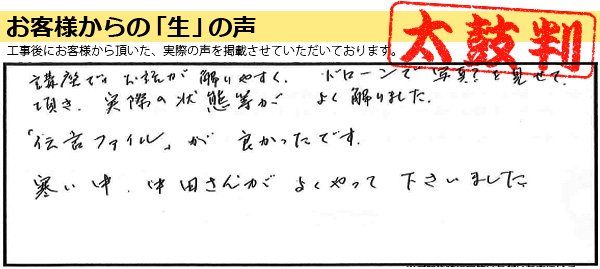 お客様からの「生」の声
工事後にお客様から頂いた、実際の声を掲載させていただいております。
太鼓判
講座でお話が解りやすく、ドローンで写真を見せて
頂き、実際の状態等がよく解りました。
「伝言ファイル」が良かったです。
寒い中、沖田さんがよくやって下さいました